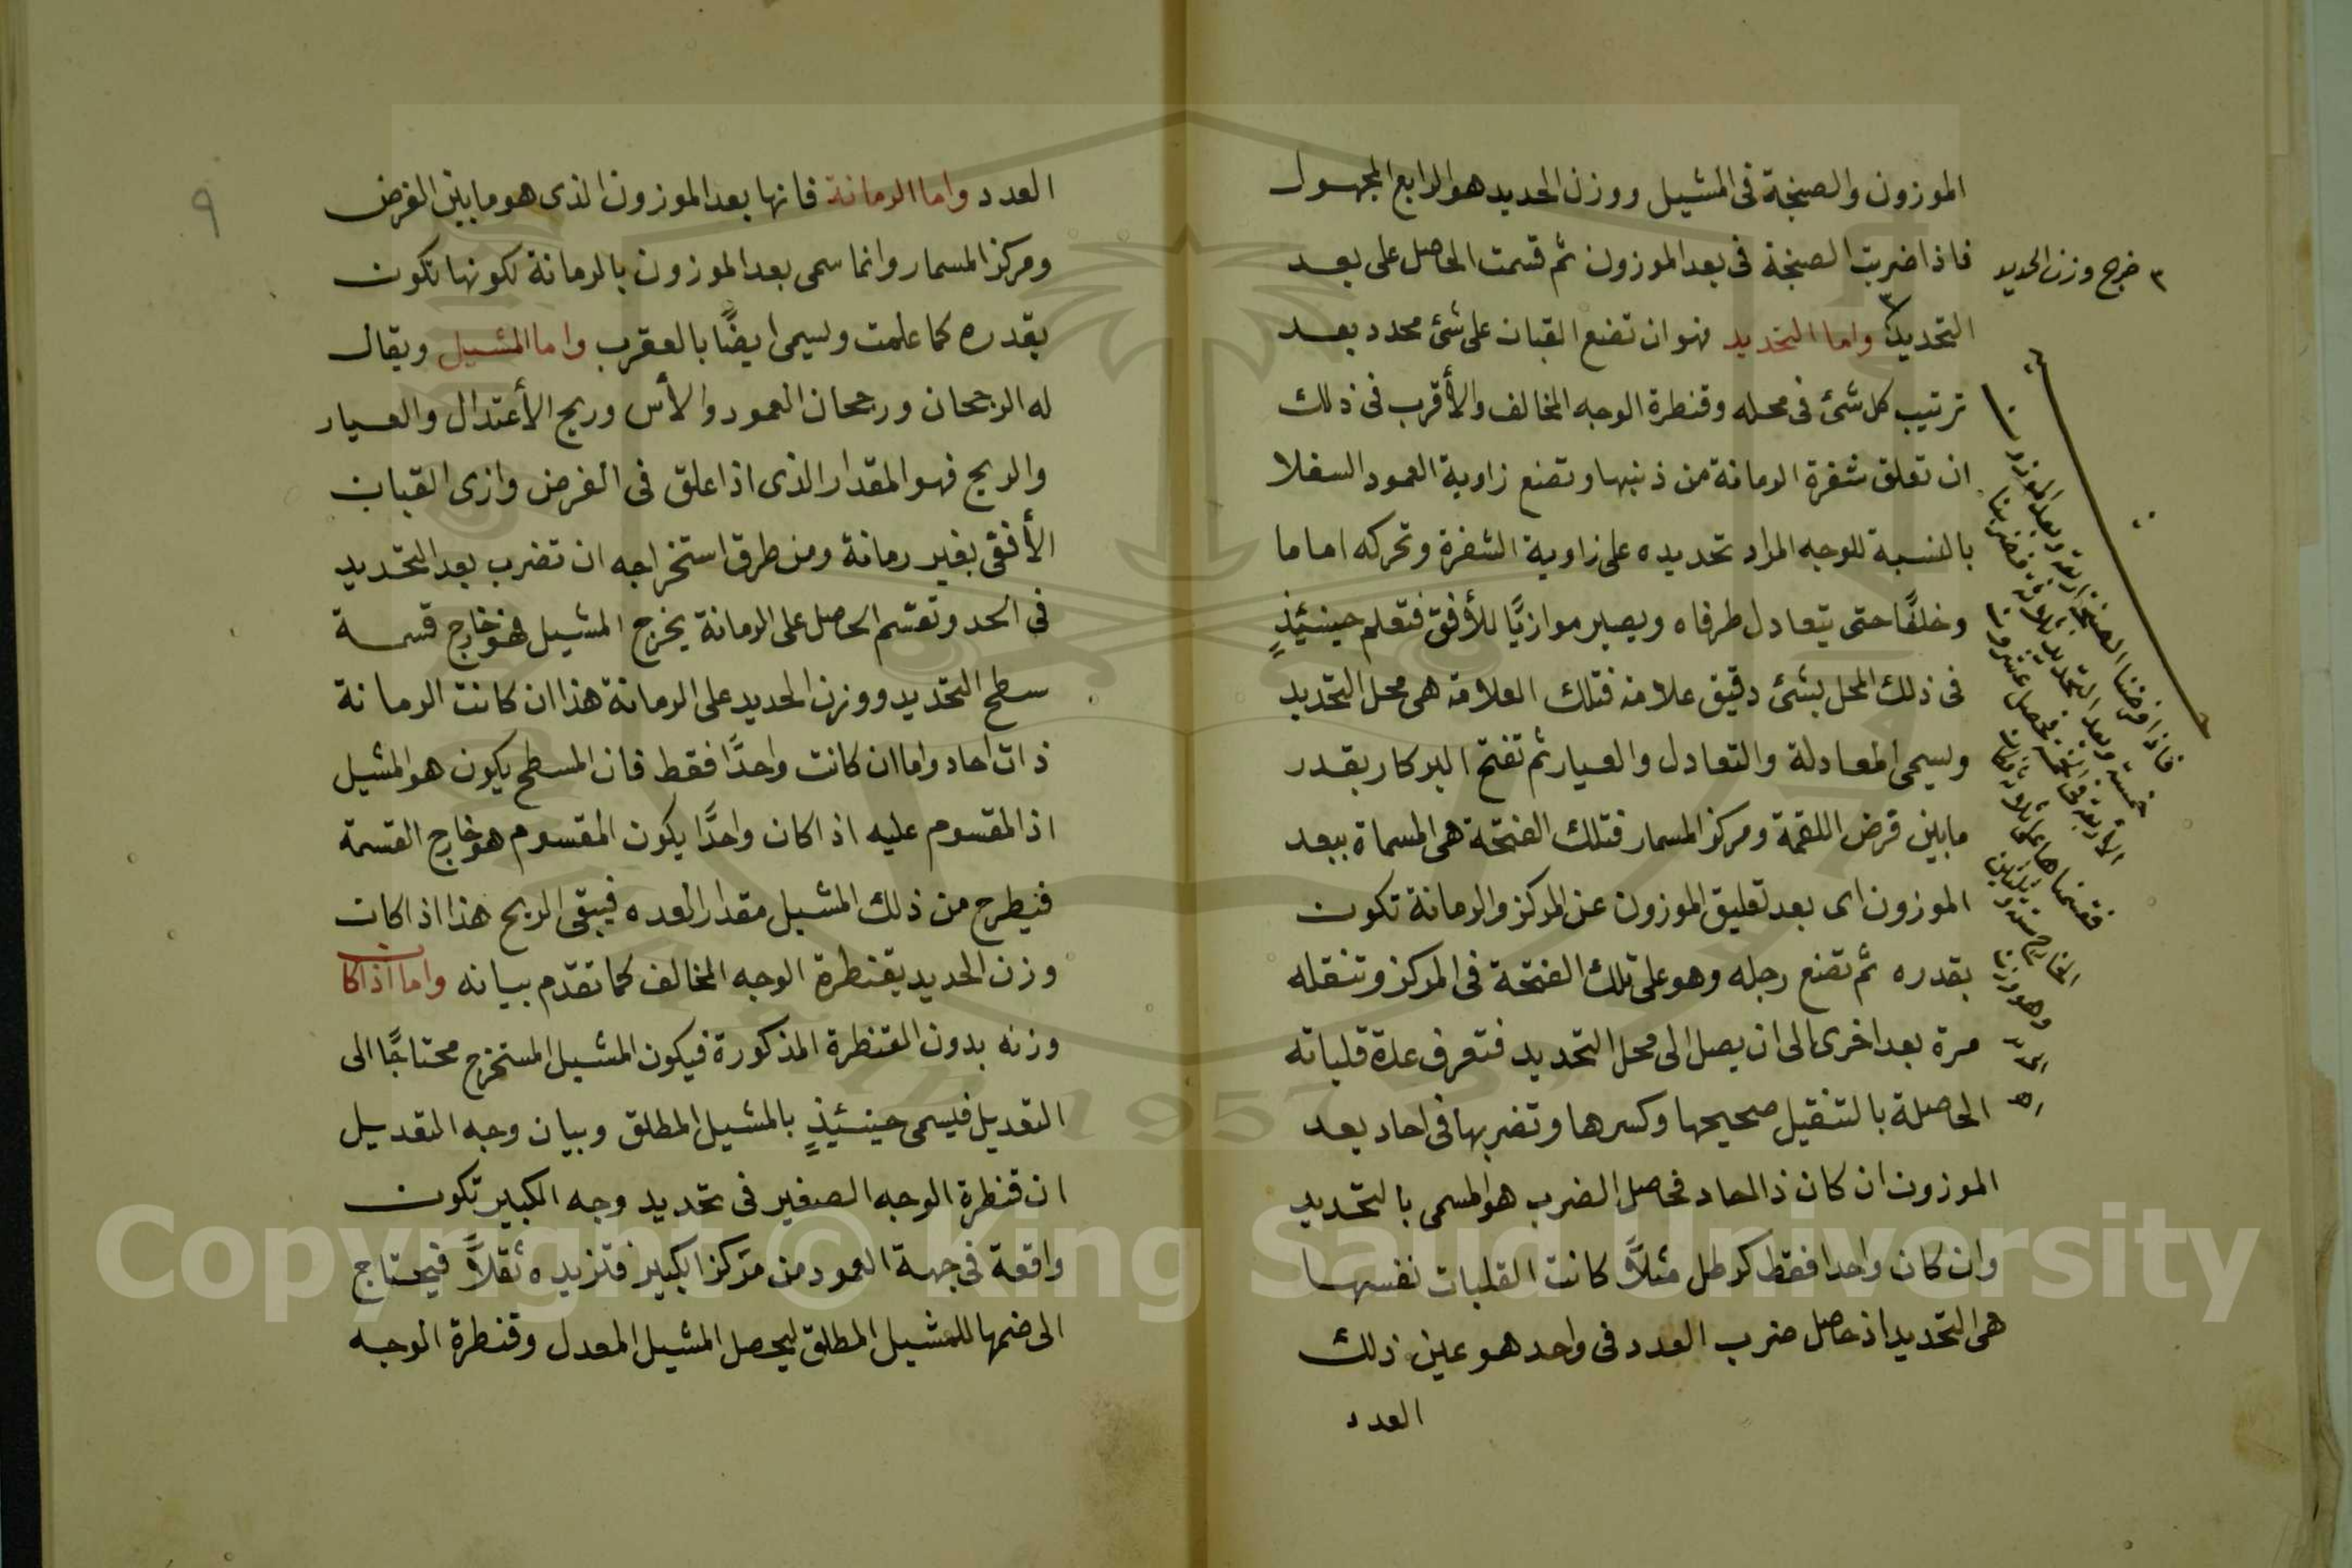 الموزون والصنجة فى المشيل ووزن الحديد هو الرابع المجهول
فاذا ضربت الصنجة فى بعد الموزون ثم قسمت الحاصل على بعد
التحديد ٣ واما التحديد فهو ان تضع القبان على شئ محدد بعد
ترتيب كل شئ فى محله وقنطرة الوجه المخالف والأقرب فى ذلك
ان تعلق شفرة الرمانة من ذنبها وتضع زاوية العمود السفلا
بالنسبة للوجه المراد تحديده على زاوية الشفرة وتحركه اماما
وخلفًا حتى يتعادل طرفاه ويصير موازيًا للأفق فتعلم حينئيذٍ
فى ذلك المحل بشئ دقيق علامة فتلك العلامة هى محل التحديد
ويسمى المعادلة والتعادل والعيار ثم تفتح البركار بقدر
مابين قرض اللقمة ومركز المسمار فتلك الفتحة هى المسماة ببعد
الموزون اى بعد تعليق الموزون عن المركز والرمانة تكون
بقدره ثم تضع رجله وهو على تلك الفتحة فى المركز وتنقله
مرة بعد اخرى الى ان يصل الى محل التحديد فتعرف عدة قلباته
الحاصلة بالتنقيل صحيحها وكسرها وتضربها فى احاد بعد
الموزون ان كان ذا احاد فحاصل الضرب هو المسمى بالتحديد
وان كان واحدا فقط كرطل مثلاً كانت القلبات نفسها
هى التحديد اذ حاصل ضرب العدد فى واحد هو عين ذلك
العدد
٣ خرج وزن الحديد
فاذا فرضنا الصنجة اربعة وبعد الموزون
خمسة وبعد التحديد فضربنا
الأربعة فى الخمسة فحصل عشرون
فقسمناها على ثلاثة فكان
الخارج ستة وثلثين
وهو وزن
الحديد
اه
٩
العدد واما الرمانة فانها بعد الموزون الذى هو مابين الفرض
ومركز المسمار وانما سمى بعد الموزون بالرمانة لكونها تكون
بقدره كما علمت ويسمى ايضًا بالعقرب واما المشيل ويقال
له الرجحان ورجحان العمود والأس وريح الأعتدال والعيار
والريح فهو المقدار الذى اذا علق فى الفرض وازى القبان
الأفق بغير رمانة ومن طرق استخراجه ان تضرب بعد التحديد
فى الحد وتقسم الحاصل على الرمانة يخرج المشيل فهو خارج قسمة
سطح التحديد ووزن الحديد على الرمانة هذا ان كانت الرمانة
ذات احاد واما ان كانت واحدًا فقط فان المسطح يكون هو المشيل
اذ المقسوم عليه اذا كان واحدًا يكون المقسوم هو خارج القسمة
فيطرح من ذلك المشيل مقدار العده فيبقى الريح هذا اذا كان
وزن الحديد بقنطرة الوجه المخالف كما تقدم بيانه واما اذا كان
وزنه بدون القنطرة المذكورة فيكون المشيل المستخرج محتاجًا الى
التعديل فيسمى حينئيذٍ بالمشيل المطلق وبيان وجه التعديل
ان قنطرة الوجه الصغير فى تحديد وجه الكبير تكون
واقعة فى جهة العمود من مركز الكبير فتزيده ثقلاً فيحتاج
الى ضمها للمشيل المطلق ليحصل المشيل المعدل وقنطرة الوجه
Copyright © King Saud University
1957